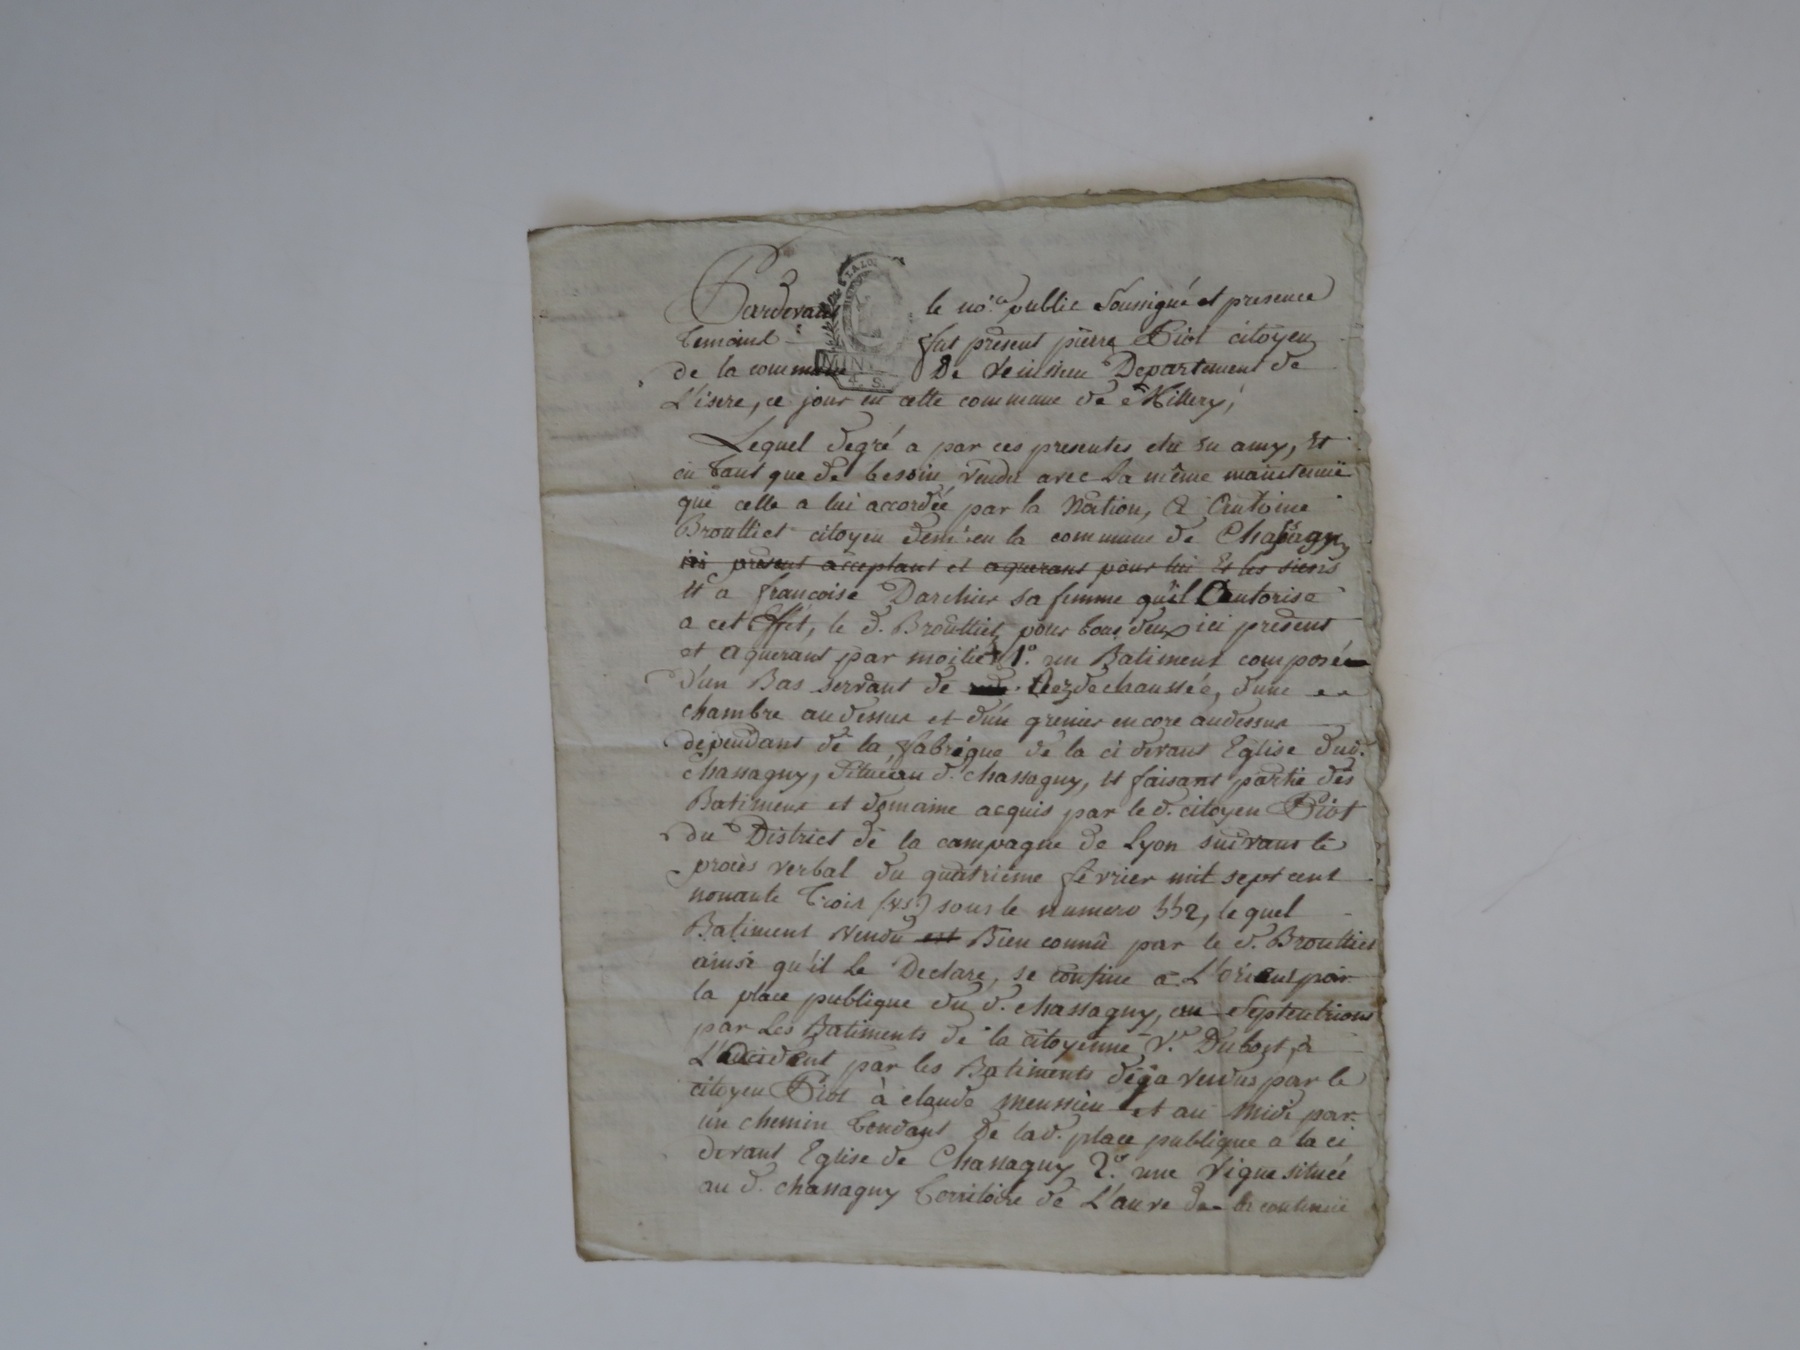 Pardevant le no.re public soussigné et presence
temoins fut present pierre Piot citoyen
de la commune De Veinsieu Departement de
L'isere, ce jour en cette commune de Millery,
Lequel degré a par ces presentes elu en amy, Et
en tant que de besoin vendu avec La même maintenuë
que celle a lui accordée par la Nation, a Antoine
Broulliet citoyen dem.t en la commune de Chasagny
ici present acceptant et aquerant pour lui Et les siens
Et a francoise Darchier sa femme qu'il autorise
a cet Effét, le d. Broulliet pour tous deux ici present
et aquerant par moitié 1.o un Batiment composé
d'un Bas servant de Rezdechaussée, d'une
chambre audessus et d'un grenier encore audessus
dépendant de la fabrique de la ci devant Eglise dud.
chassagny, situé au d. chassagny, et faisant partie des
Batiment et domaine acquis par le d. citoyen Piot
du District de la campagne de Lyon suivant le
procès verbal du quatrième février mil sept cent
nonante trois (v.s.) sous le numero 552, lequel
Batiment vendu est Bien connû par le d. Broulliet
ainsi qu'il Le Declare, se confine a L'orient par
la place publique du d. chassagny, au Septentrion
par Les Batiments de la citoyenne V.e Dubost, a
L'occident par les Batiments déja vendus par le
citoyen Piot à claude meussieu et au midi par
un chemin tendant de lad. place publique a la ci
devant Eglise de Chassagny 2.o une vigne située
au d. chassagny territoire de L'aure de la contenuë
T.A LOI
MIN
4. S.